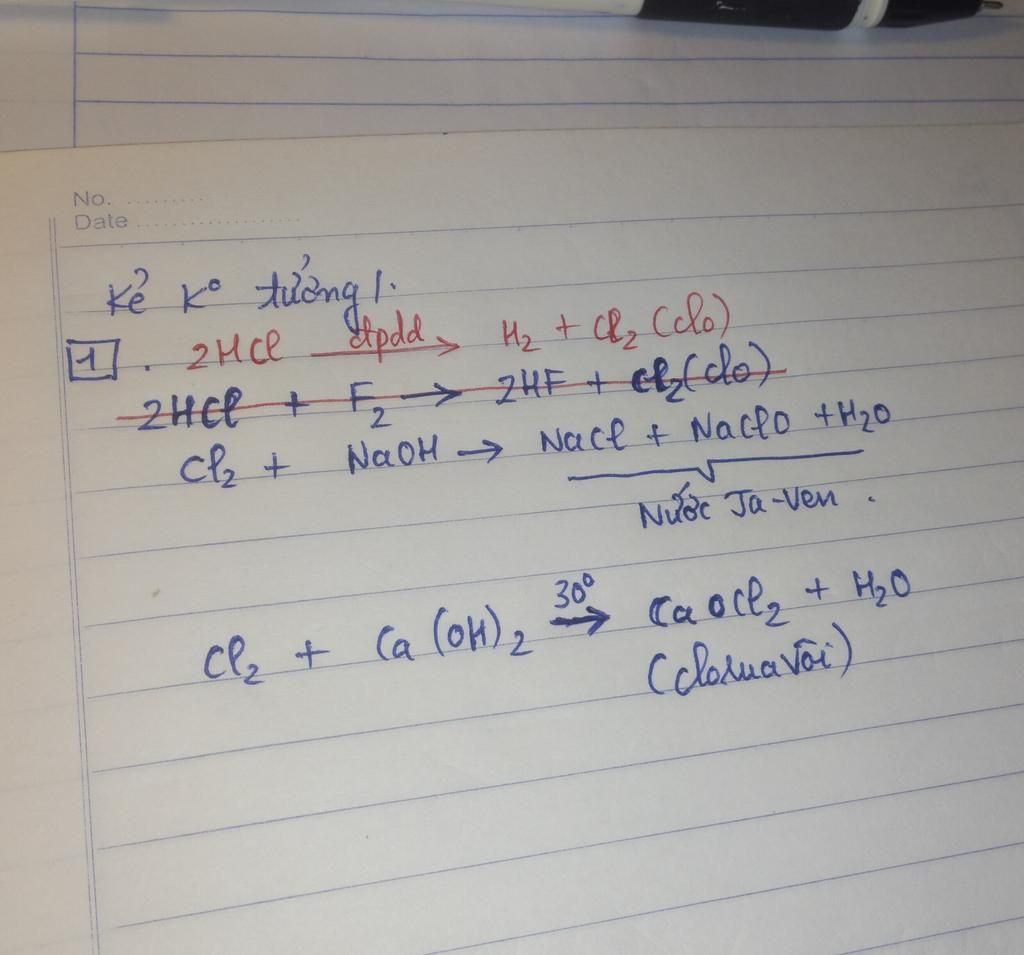 No. ..........
Date ....................
Kẻ Kº tưởng/.
1 . 2HCl đpdd → H₂ + Cl₂ (clo)
2HCl + F₂ → 2HF + Cl₂ (clo)
Cl₂ + NaOH → NaCl + NaClO + H₂O
Nước Ja-Ven .
Cl₂ + Ca(OH)₂ 30º → CaOCl₂ + H₂O
(clorua vôi)